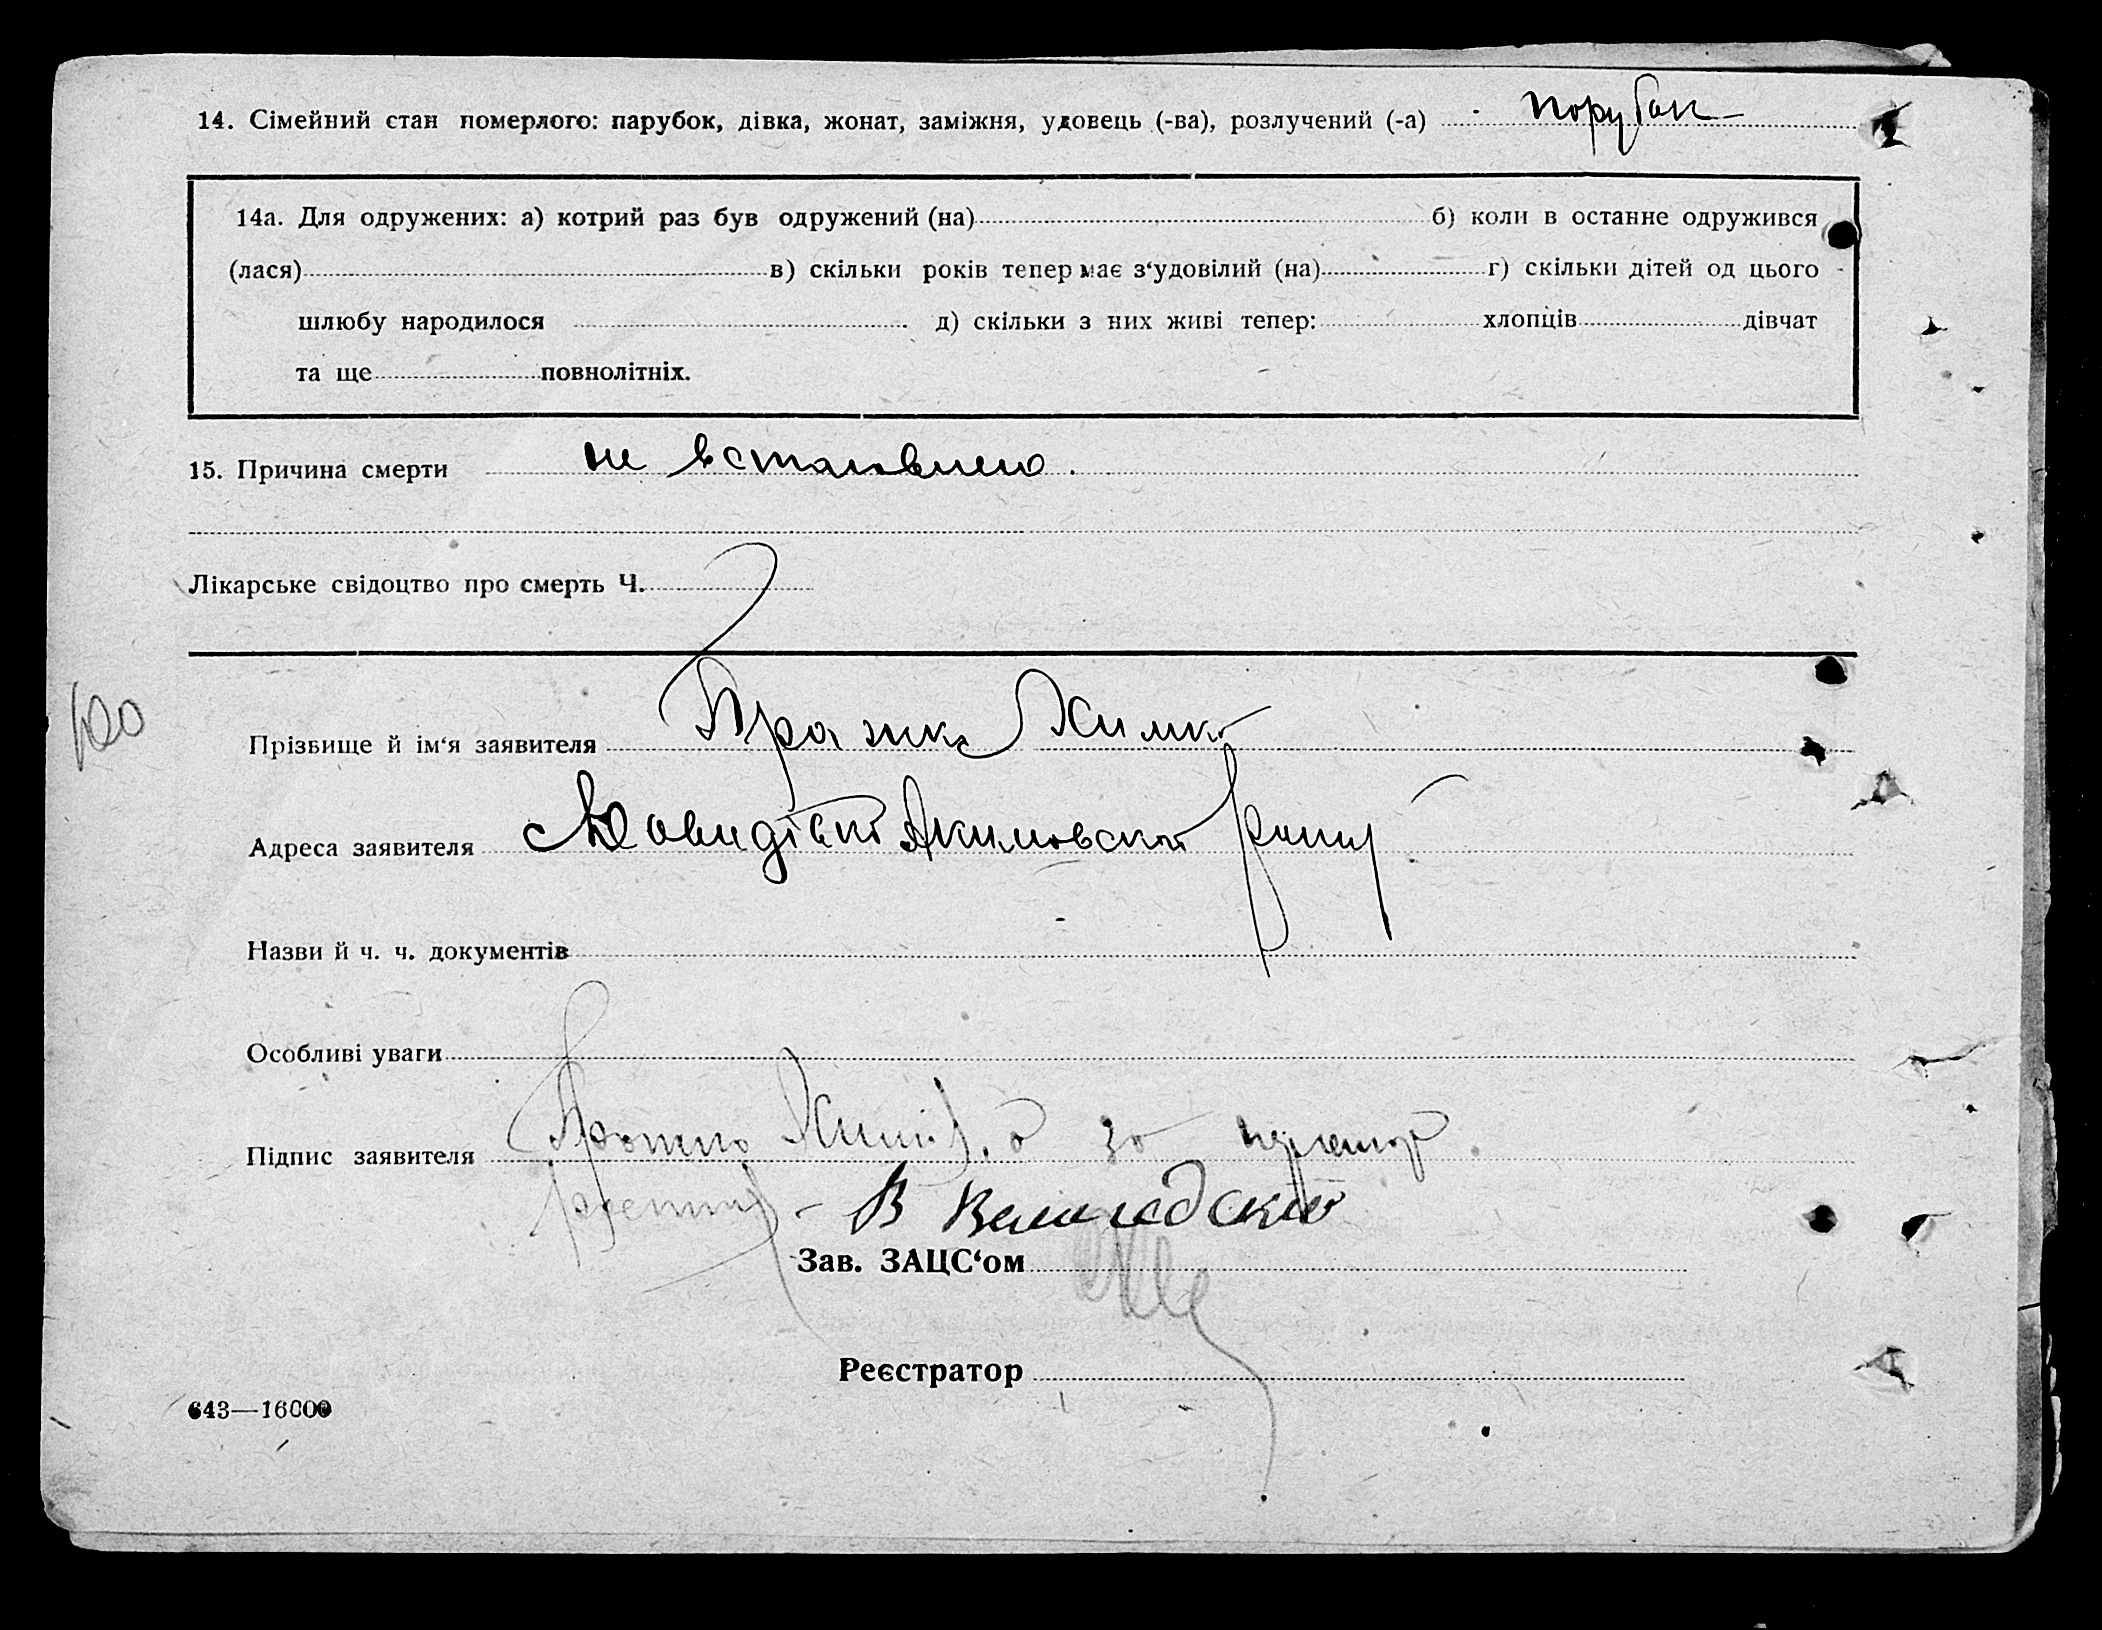 14. Сімейний стан померлого: парубок, дівка, жонат, заміжня, удовець (-ва), розлучений (-а) порубок
14а. Для одружених: а) котрий раз був одружений (на) б) коли в останне одружився
(лася) в) скільки років тепер має з‘удовілий (на) г) скільки дітей од цього
шлюбу народилося д) скільки з них живі тепер: хлопців дівчат
та ще повнолітніх.
15. Причина смерти не встановлено.
Лікарське свідоцтво про смерть Ч.
100
Прізвище й ім‘я заявителя Пражка Химка
Адреса заявителя Довидівкі Акимовской
Назви й ч. ч. документів
Особливі уваги
Підпис заявителя а за
В
Зав. ЗАЦС‘ом
Реєстратор
643—16000